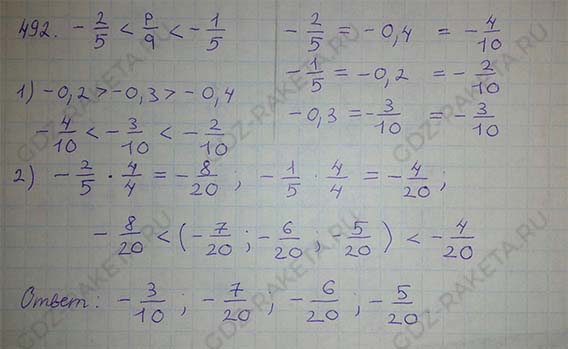 492. -2/5 < p/9 < -1/5
-2/5 = -0,4 = -4/10
-1/5 = -0,2 = -2/10
-0,3 = -3/10 = -3/10
1) -0,2 > -0,3 > -0,4
-4/10 < -3/10 < -2/10
2) -2/5 · 4/4 = -8/20 ; -1/5 · 4/4 = -4/20 ;
-8/20 < (-7/20 ; -6/20 ; -5/20) < -4/20
Ответ: -3/10 ; -7/20 ; -6/20 ; -5/20
GDZ-RAKETA.RU